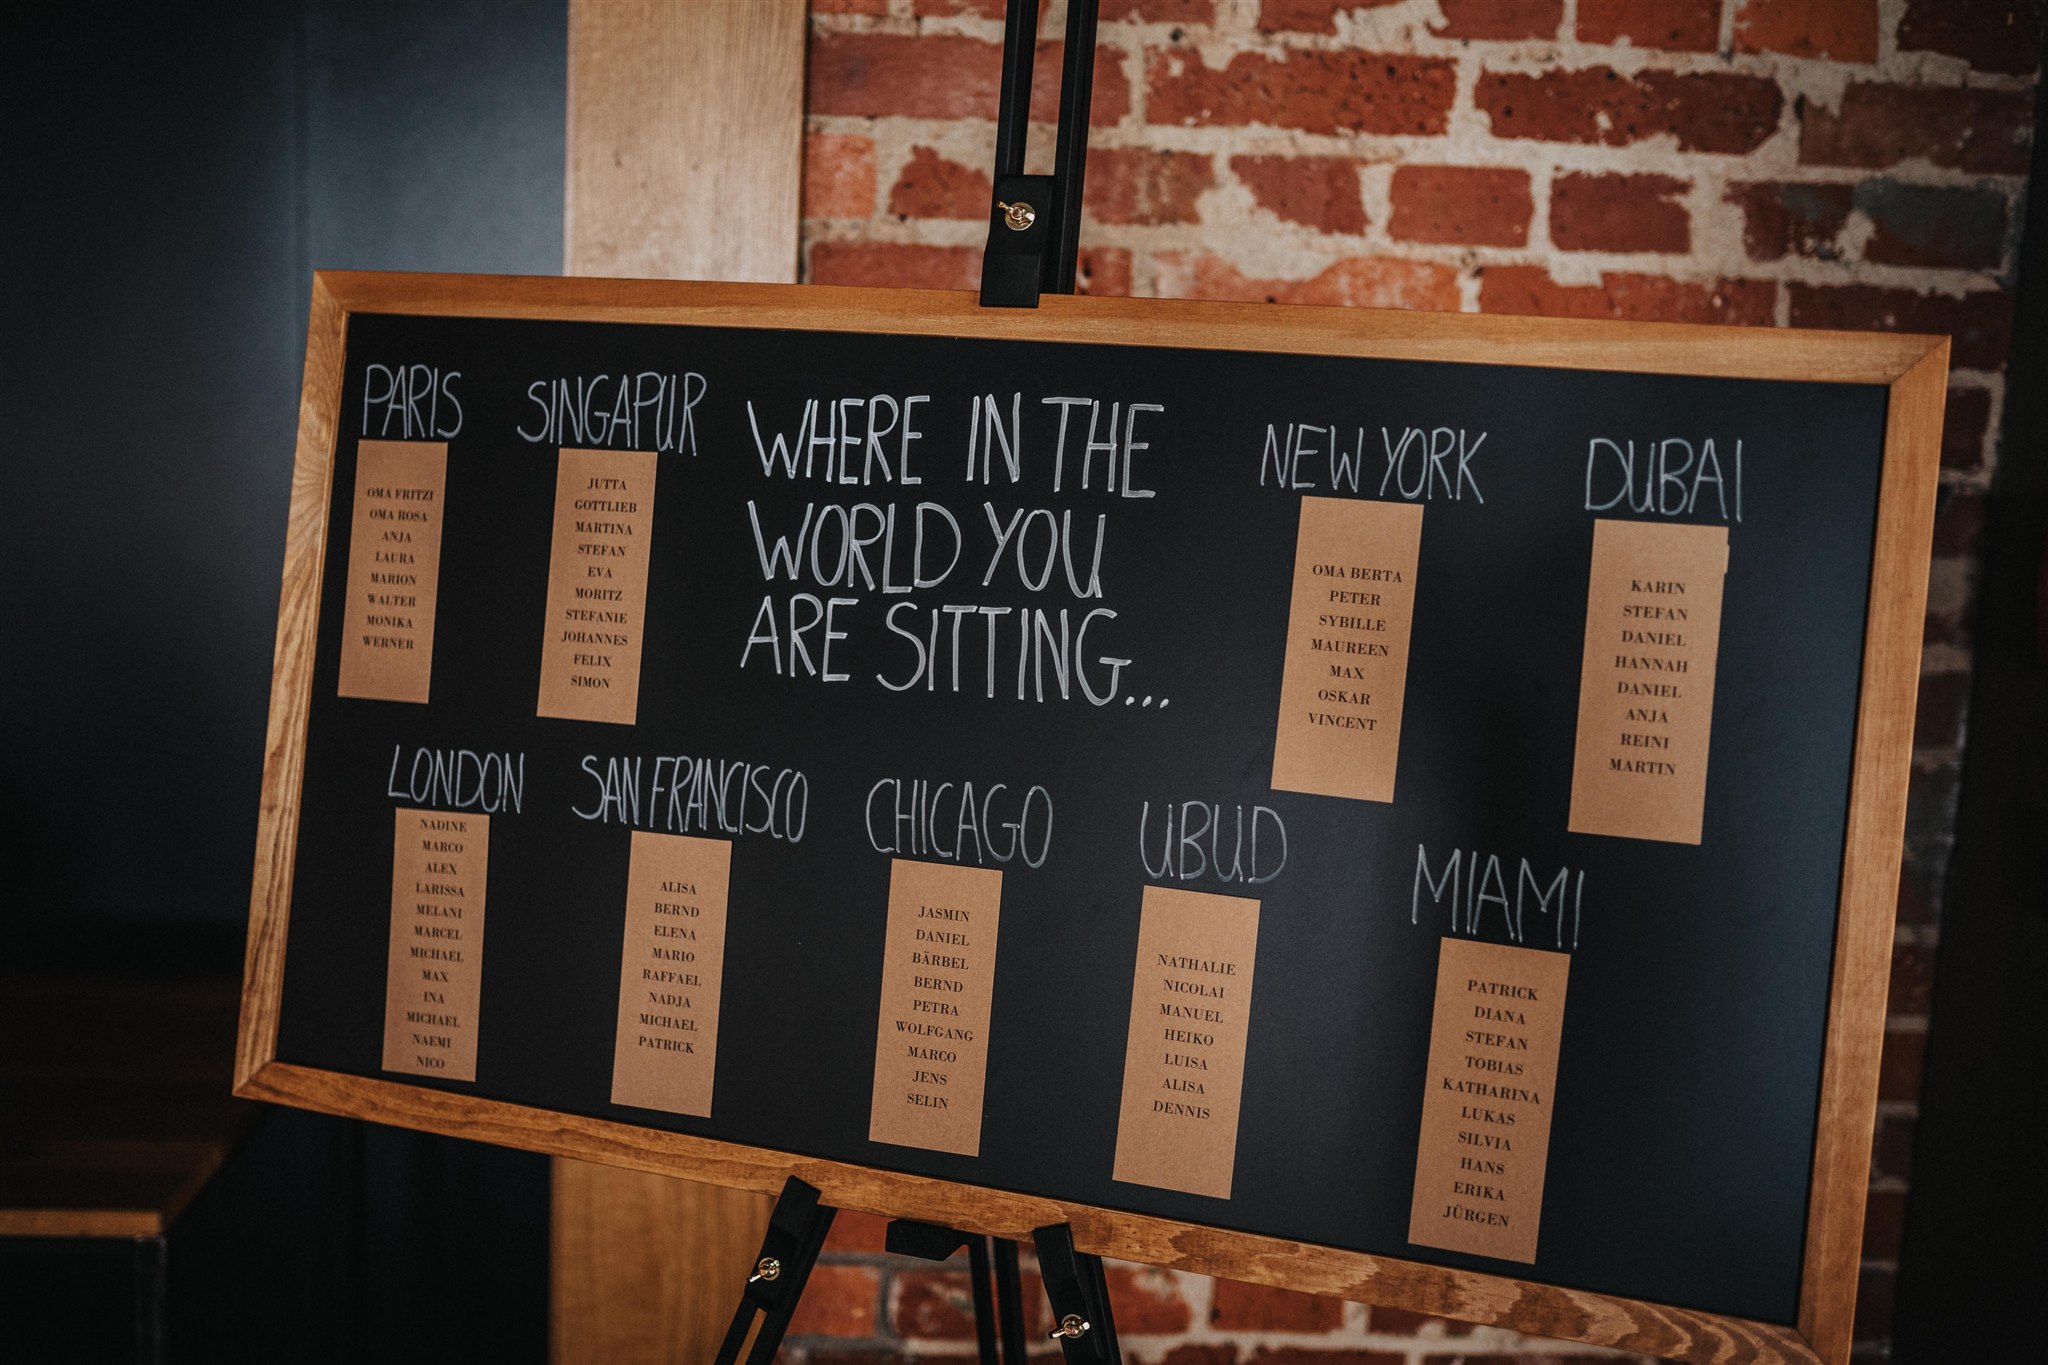 PARIS
OMA FRITZI
OMA ROSA
ANJA
LAURA
MARION
WALTER
MONIKA
WERNER
SINGAPUR
JUTTA
GOTTLIEB
MARTINA
STEFAN
EVA
MORITZ
STEFANIE
JOHANNES
FELIX
SIMON
WHERE IN THE
WORLD YOU
ARE SITTING...
NEW YORK
OMA BERTA
PETER
SYBILLE
MAUREEN
MAX
OSKAR
VINCENT
DUBAI
KARIN
STEFAN
DANIEL
HANNAH
DANIEL
ANJA
REINI
MARTIN
LONDON
NADINE
MARCO
ALEX
LARISSA
MELANI
MARCEL
MICHAEL
MAX
INA
MICHAEL
NAEMI
NICO
SAN FRANCISCO
ALISA
BERND
ELENA
MARIO
RAFFAEL
NADJA
MICHAEL
PATRICK
CHICAGO
JASMIN
DANIEL
BÄRBEL
BERND
PETRA
WOLFGANG
MARCO
JENS
SELIN
UBUD
NATHALIE
NICOLAI
MANUEL
HEIKO
LUISA
ALISA
DENNIS
MIAMI
PATRICK
DIANA
STEFAN
TOBIAS
KATHARINA
LUKAS
SILVIA
HANS
ERIKA
JÜRGEN